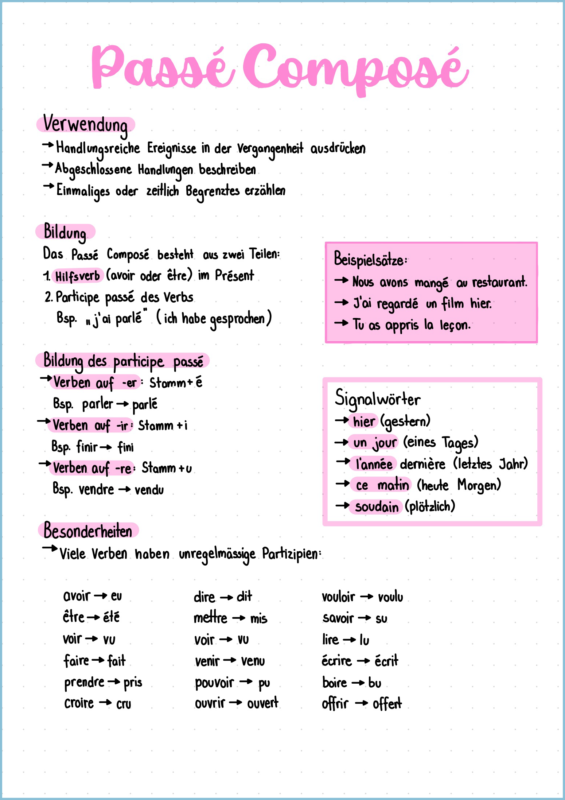 Passé Composé
Verwendung
→ Handlungsreiche Ereignisse in der Vergangenheit ausdrücken
→ Abgeschlossene Handlungen beschreiben
→ Einmaliges oder zeitlich Begrenztes erzählen
Bildung
Das Passé Composé besteht aus zwei Teilen:
1. Hilfsverb (avoir oder être) im Présent
2. Participe passé des Verbs
Bsp. „j'ai parlé" (ich habe gesprochen)
Beispielsätze:
→ Nous avons mangé au restaurant.
→ J'ai regardé un film hier.
→ Tu as appris la leçon.
Bildung des participe passé
→ Verben auf -er: Stamm + é
Bsp. parler → parlé
→ Verben auf -ir: Stamm + i
Bsp. finir → fini
→ Verben auf -re: Stamm + u
Bsp. vendre → vendu
Signalwörter
→ hier (gestern)
→ un jour (eines Tages)
→ l'année dernière (letztes Jahr)
→ ce matin (heute Morgen)
→ soudain (plötzlich)
Besonderheiten
→ Viele Verben haben unregelmässige Partizipien:
avoir → eu
être → été
voir → vu
faire → fait
prendre → pris
croire → cru
dire → dit
mettre → mis
voir → vu
venir → venu
pouvoir → pu
ouvrir → ouvert
vouloir → voulu
savoir → su
lire → lu
écrire → écrit
boire → bu
offrir → offert